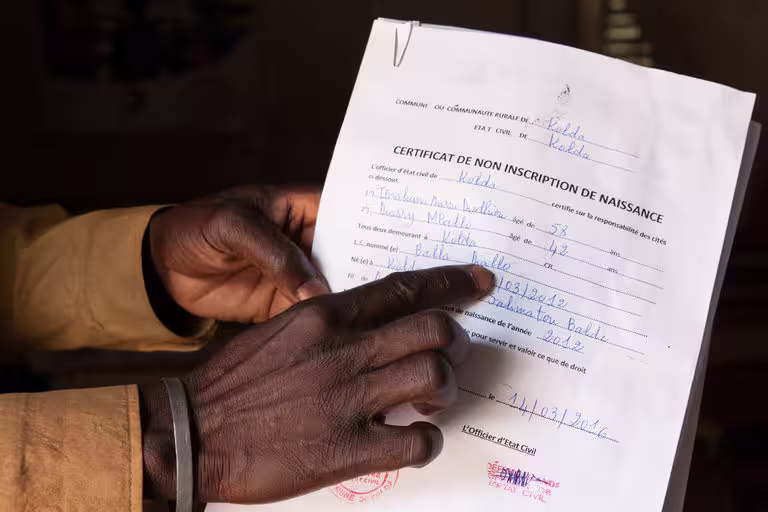 COMMUNE OU COMMUNAUTE RURALE DE Kolda
ETAT CIVIL DE Kolda
CERTIFICAT DE NON INSCRIPTION DE NAISSANCE
L'officier d'état civil de Kolda certifie sur la responsabilité des cités
ci dessous.
1°) Ibrahim âgé de 58 ans
2°) Mballo âgé de 42 ans
Tous deux demeurant à Kolda CR
Le nommé (e) Balla
Né (e) à /03/2012
Salimatou Balde
de naissance de l'année 2012
pour servir et valoir ce que de droit
le 14/03/2016
L'Officier d'Etat Civil
ETAT CIVIL